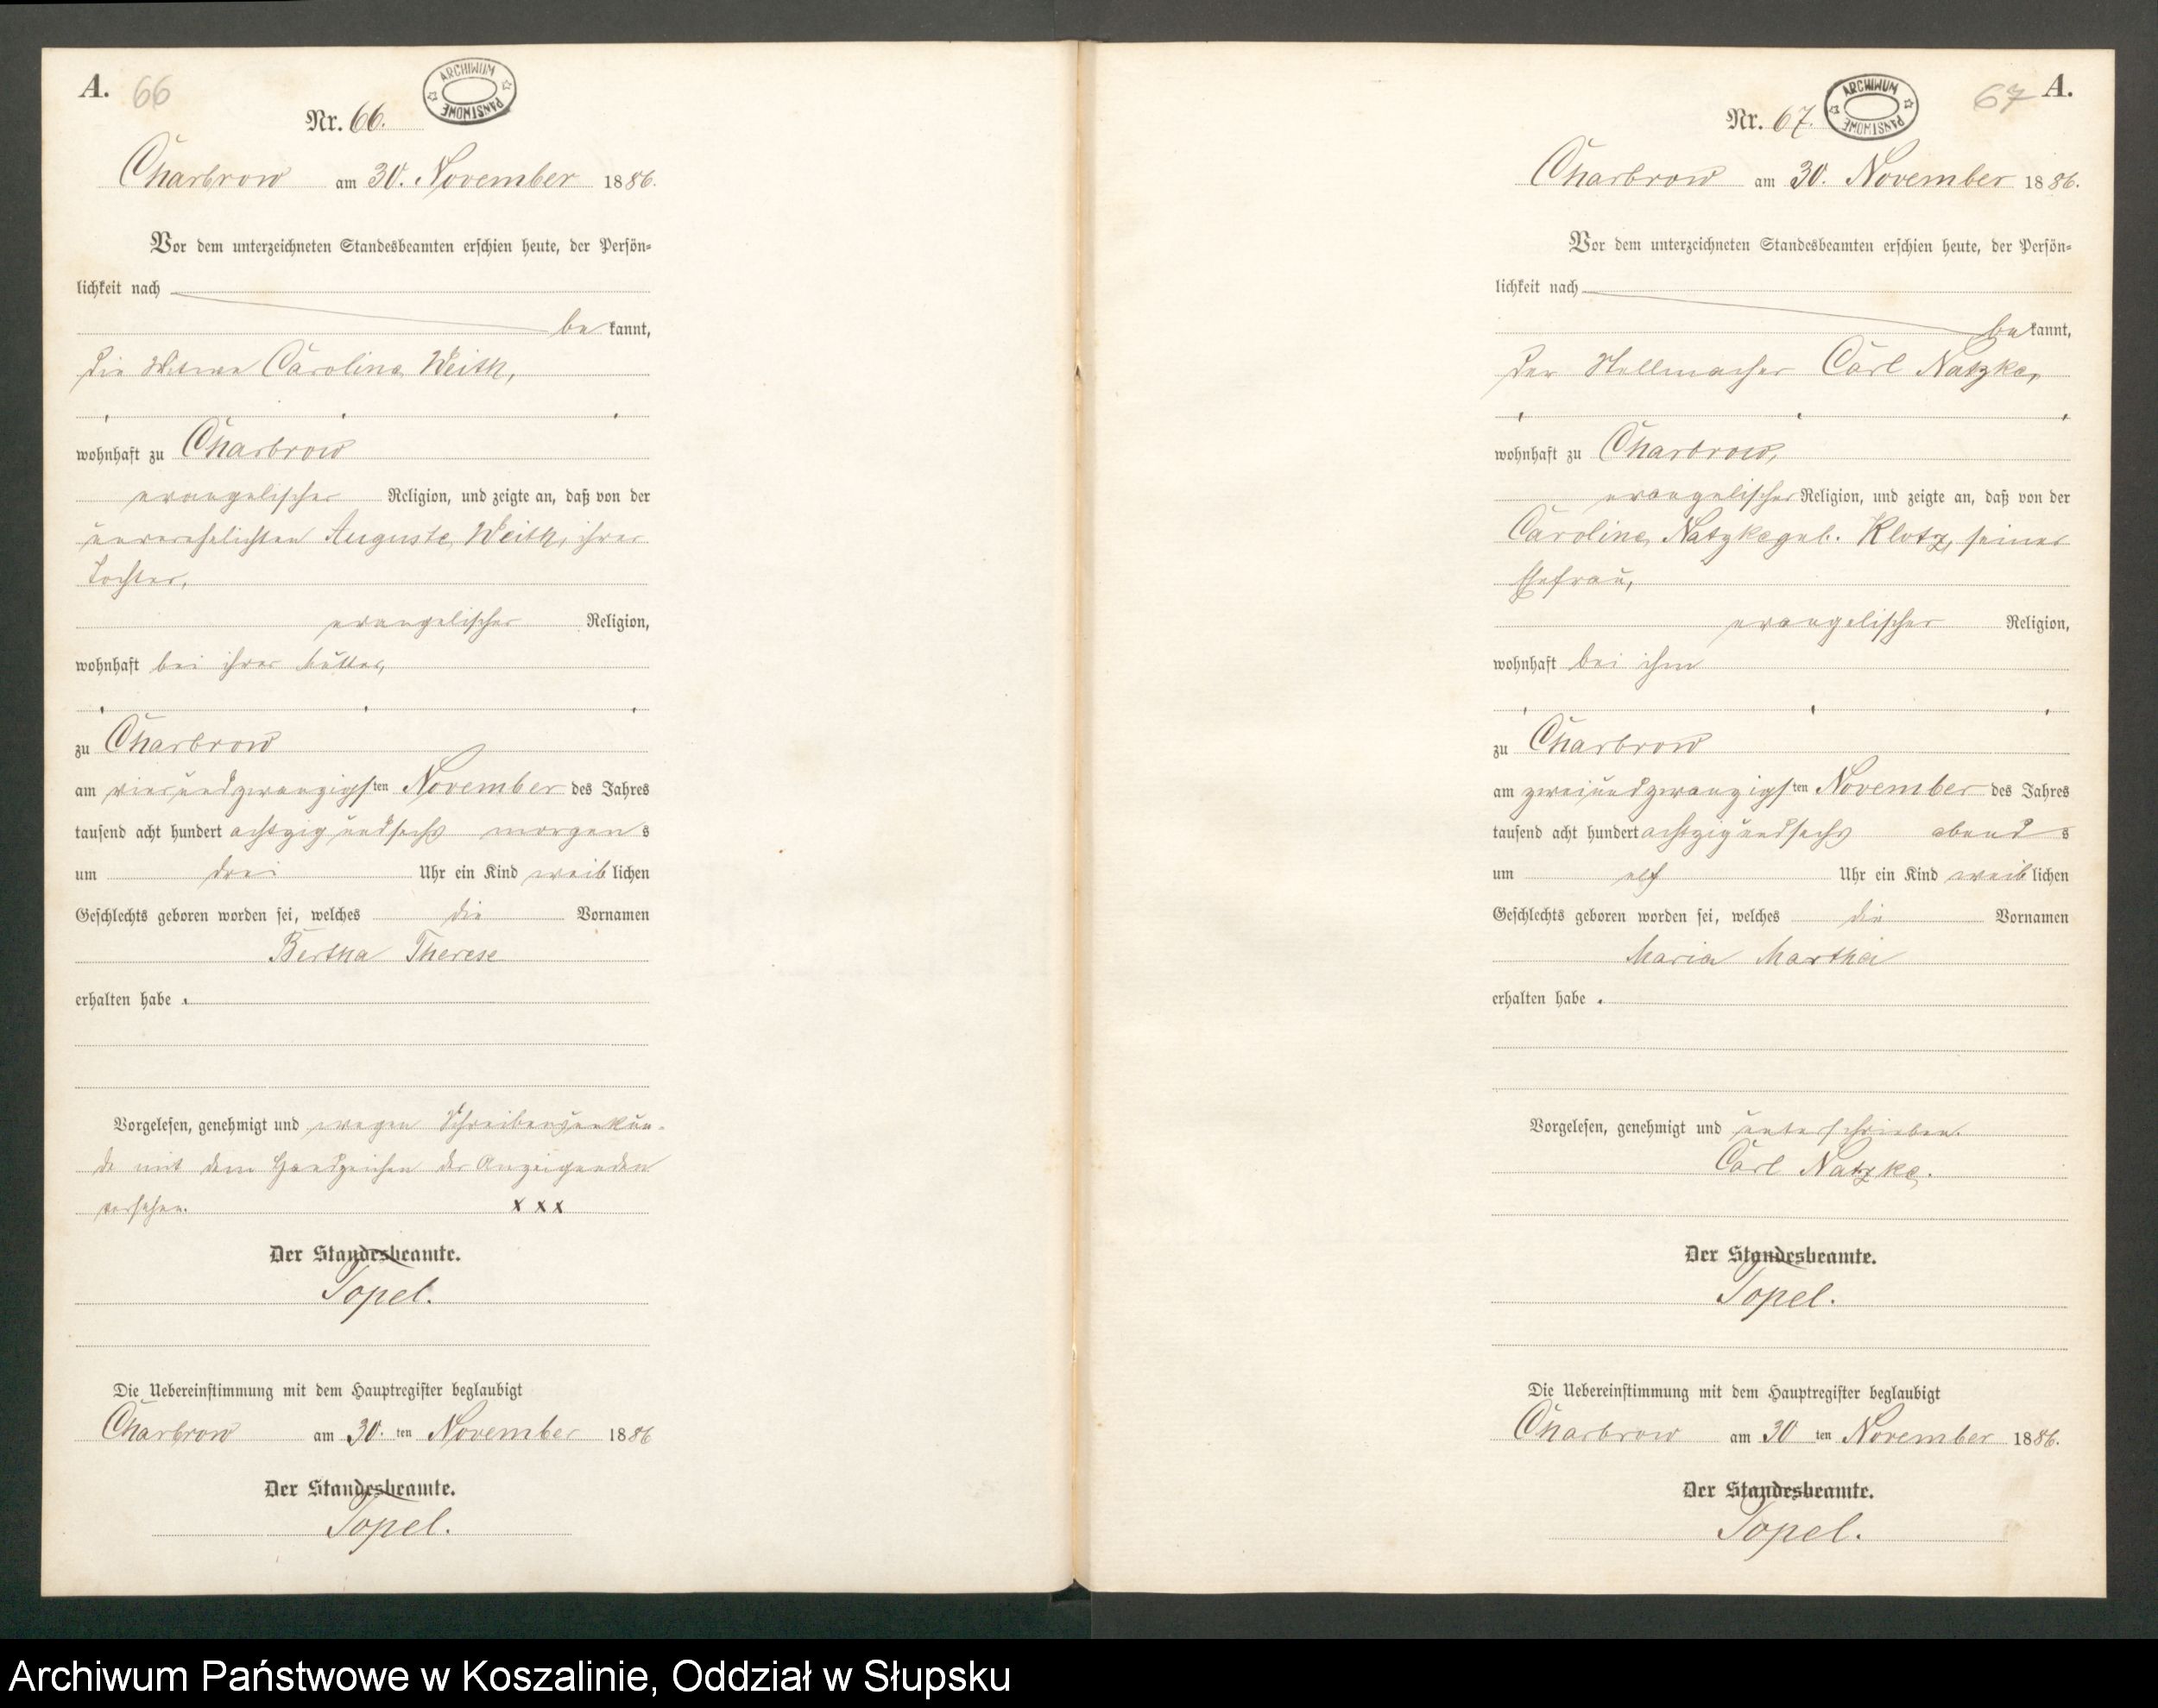 A. 66
ARCHIWUM PAŃSTWOWE
Nr. 66.
Charbrow am 30. November 1886.
Vor dem unterzeichneten Standesbeamten erschien heute, der Persön-
lichkeit nach
bekannt,
die Witwe Caroline Weith,
wohnhaft zu Charbrow
evangelischer Religion, und zeigte an, daß von der
unverehelichten Auguste Weith, ihrer
Tochter,
evangelischer Religion,
wohnhaft bei ihrer Mutter,
zu Charbrow
am vierundzwanzigsten November des Jahres
tausend acht hundert achtzig und sechs morgens
um drei Uhr ein Kind weiblichen
Geschlechts geboren worden sei, welches die Vornamen
Bertha Therese
erhalten habe.
Vorgelesen, genehmigt und wegen Schreibensunkun-
de mit dem Handzeichen der Anzeigenden
versehen. x x x
Der Standesbeamte.
Topel.
Die Uebereinstimmung mit dem Hauptregister beglaubigt
Charbrow am 30. ten November 1886
Der Standesbeamte.
Topel.
67 A.
ARCHIWUM PAŃSTWOWE
Nr. 67.
Charbrow am 30. November 1886.
Vor dem unterzeichneten Standesbeamten erschien heute, der Persön-
lichkeit nach
bekannt,
der Stellmacher Carl Natzke,
wohnhaft zu Charbrow,
evangelischer Religion, und zeigte an, daß von der
Caroline Natzke geb. Klotz, seiner
Ehefrau,
evangelischer Religion,
wohnhaft bei ihm
zu Charbrow
am zweiundzwanzigsten November des Jahres
tausend acht hundert achtzig und sechs abends
um elf Uhr ein Kind weiblichen
Geschlechts geboren worden sei, welches die Vornamen
Maria Martha
erhalten habe.
Vorgelesen, genehmigt und unterschrieben.
Carl Natzke.
Der Standesbeamte.
Topel.
Die Uebereinstimmung mit dem Hauptregister beglaubigt
Charbrow am 30 ten November 1886.
Der Standesbeamte.
Topel.
Archiwum Państwowe w Koszalinie, Oddział w Słupsku